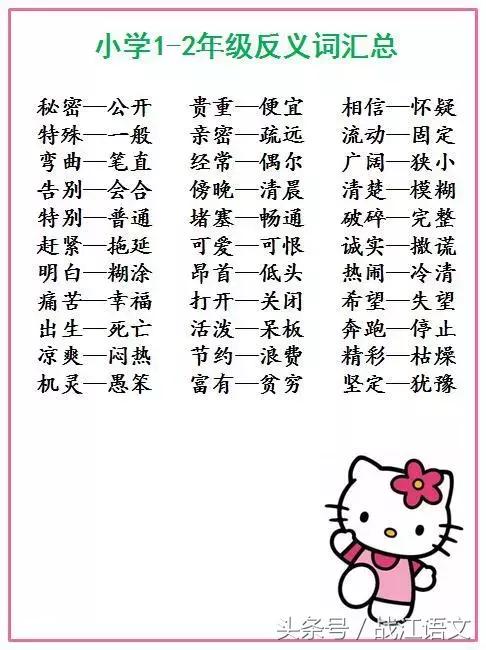 小学1-2年级反义词汇总
秘密—公开 贵重—便宜 相信—怀疑
特殊—一般 亲密—疏远 流动—固定
弯曲—笔直 经常—偶尔 广阔—狭小
告别—会合 傍晚—清晨 清楚—模糊
特别—普通 堵塞—畅通 破碎—完整
赶紧—拖延 可爱—可恨 诚实—撒谎
明白—糊涂 昂首—低头 热闹—冷清
痛苦—幸福 打开—关闭 希望—失望
出生—死亡 活泼—呆板 奔跑—停止
凉爽—闷热 节约—浪费 精彩—枯燥
机灵—愚笨 富有—贫穷 坚定—犹豫
头条号/战江语文